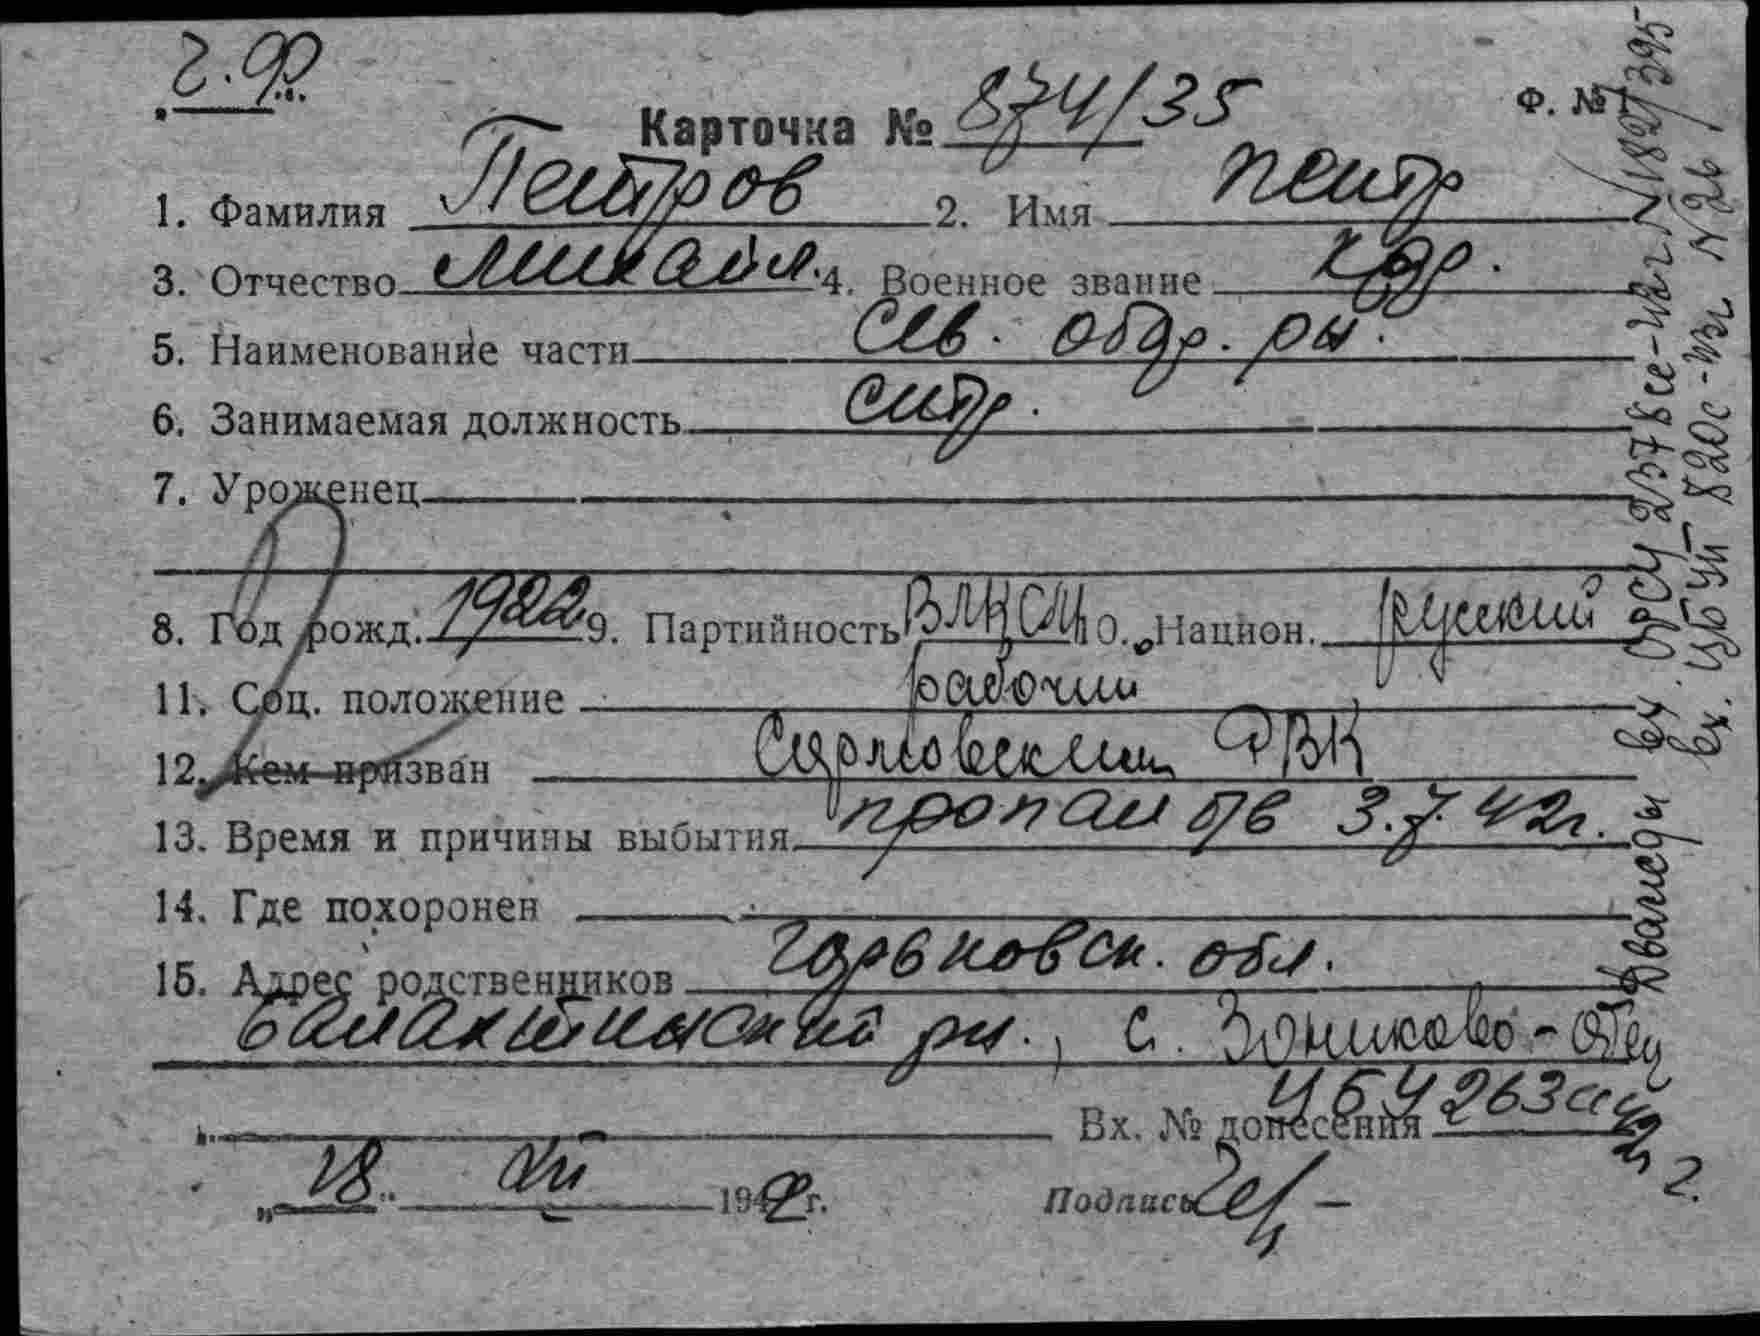 Ч.Ф.
Карточка № 874/35
Ф. №
1. Фамилия Петров 2. Имя Петр
3. Отчество Михайл. 4. Военное звание кр.
5. Наименование части Сев. обор. рн.
6. Занимаемая должность стр.
7. Уроженец
8. Год рожд. 1922 9. Партийность ВЛКСМ 10. Национ. русский
11. Соц. положение рабочий
12. Кем призван Сормовским РВК
13. Время и причины выбытия пропал б/в 3.7.42г.
14. Где похоронен
15. Адрес родственников Горьковск. обл.
Балахнинский рн., с. - отец
Вх. № донесения 263
„18" XII 1942 г. Подпись
Дважды вх. 2378
вх. 820с